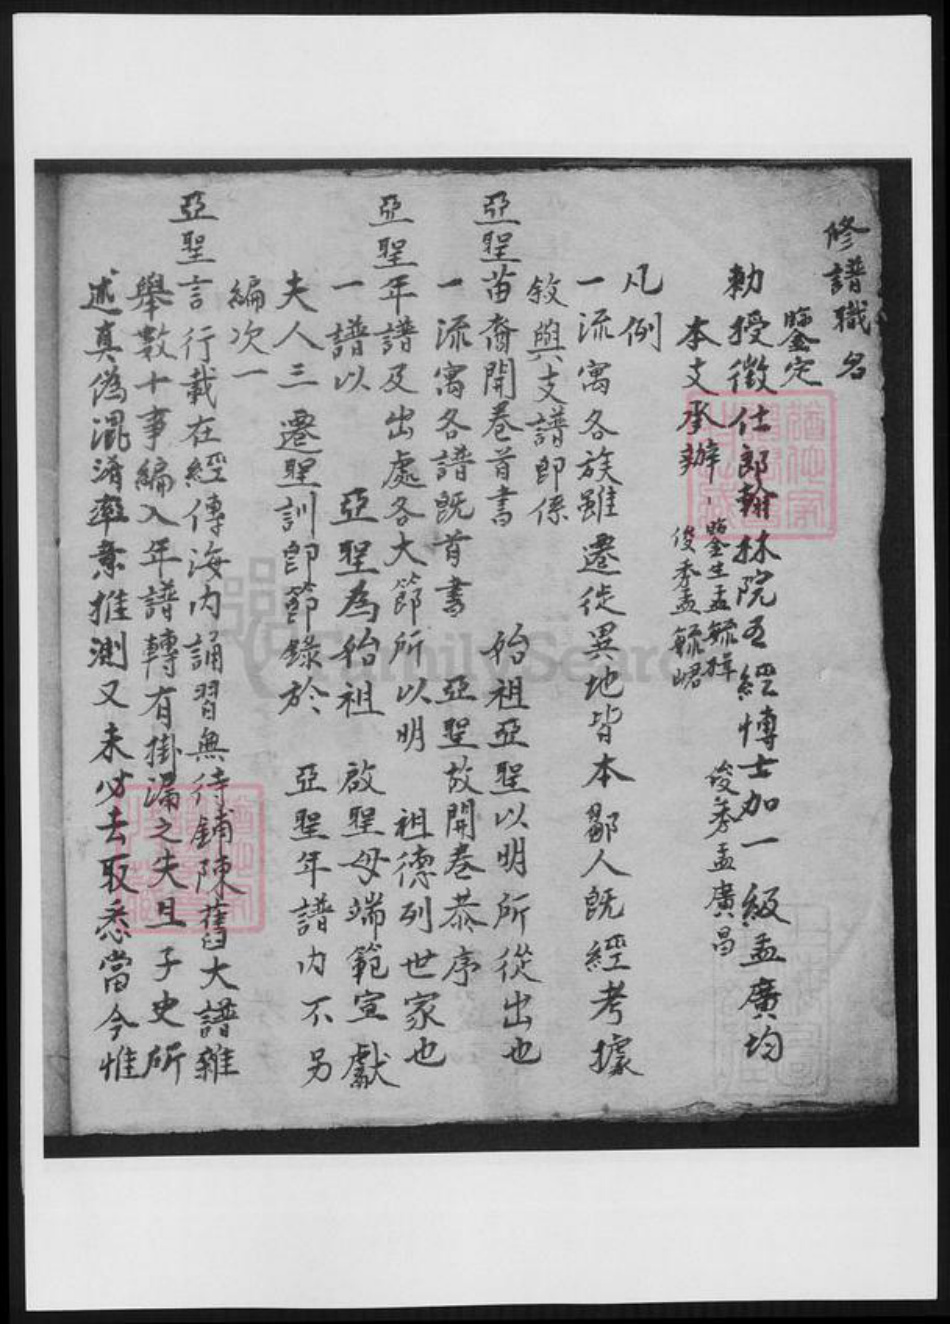 修譜職名
鑒定
勅授徵仕郎翰林院五經博士加一級孟廣均
本支承辦
監生孟毓緝
俊秀孟毓峮
俊秀孟廣昌
凡例
一流寓各族雖遷徙異地皆本鄒人既經考據
敘與支譜即係
亞聖苗裔開卷首書 始祖亞聖以明所從出也
一流寓各譜既首書 亞聖故開卷恭序
亞聖年譜及出處各大節所以明 祖德列世家也
一譜以 亞聖為始祖 啟聖母端範宣獻
夫人三遷聖訓即節錄於 亞聖年譜内不另
編次一
亞聖言行載在經傳海内誦習無待鋪陳舊大譜雜
舉數十事編入年譜轉有掛漏之失且子史所
述真偽混淆率意推測又未必去取悉當今惟
FamilySearch